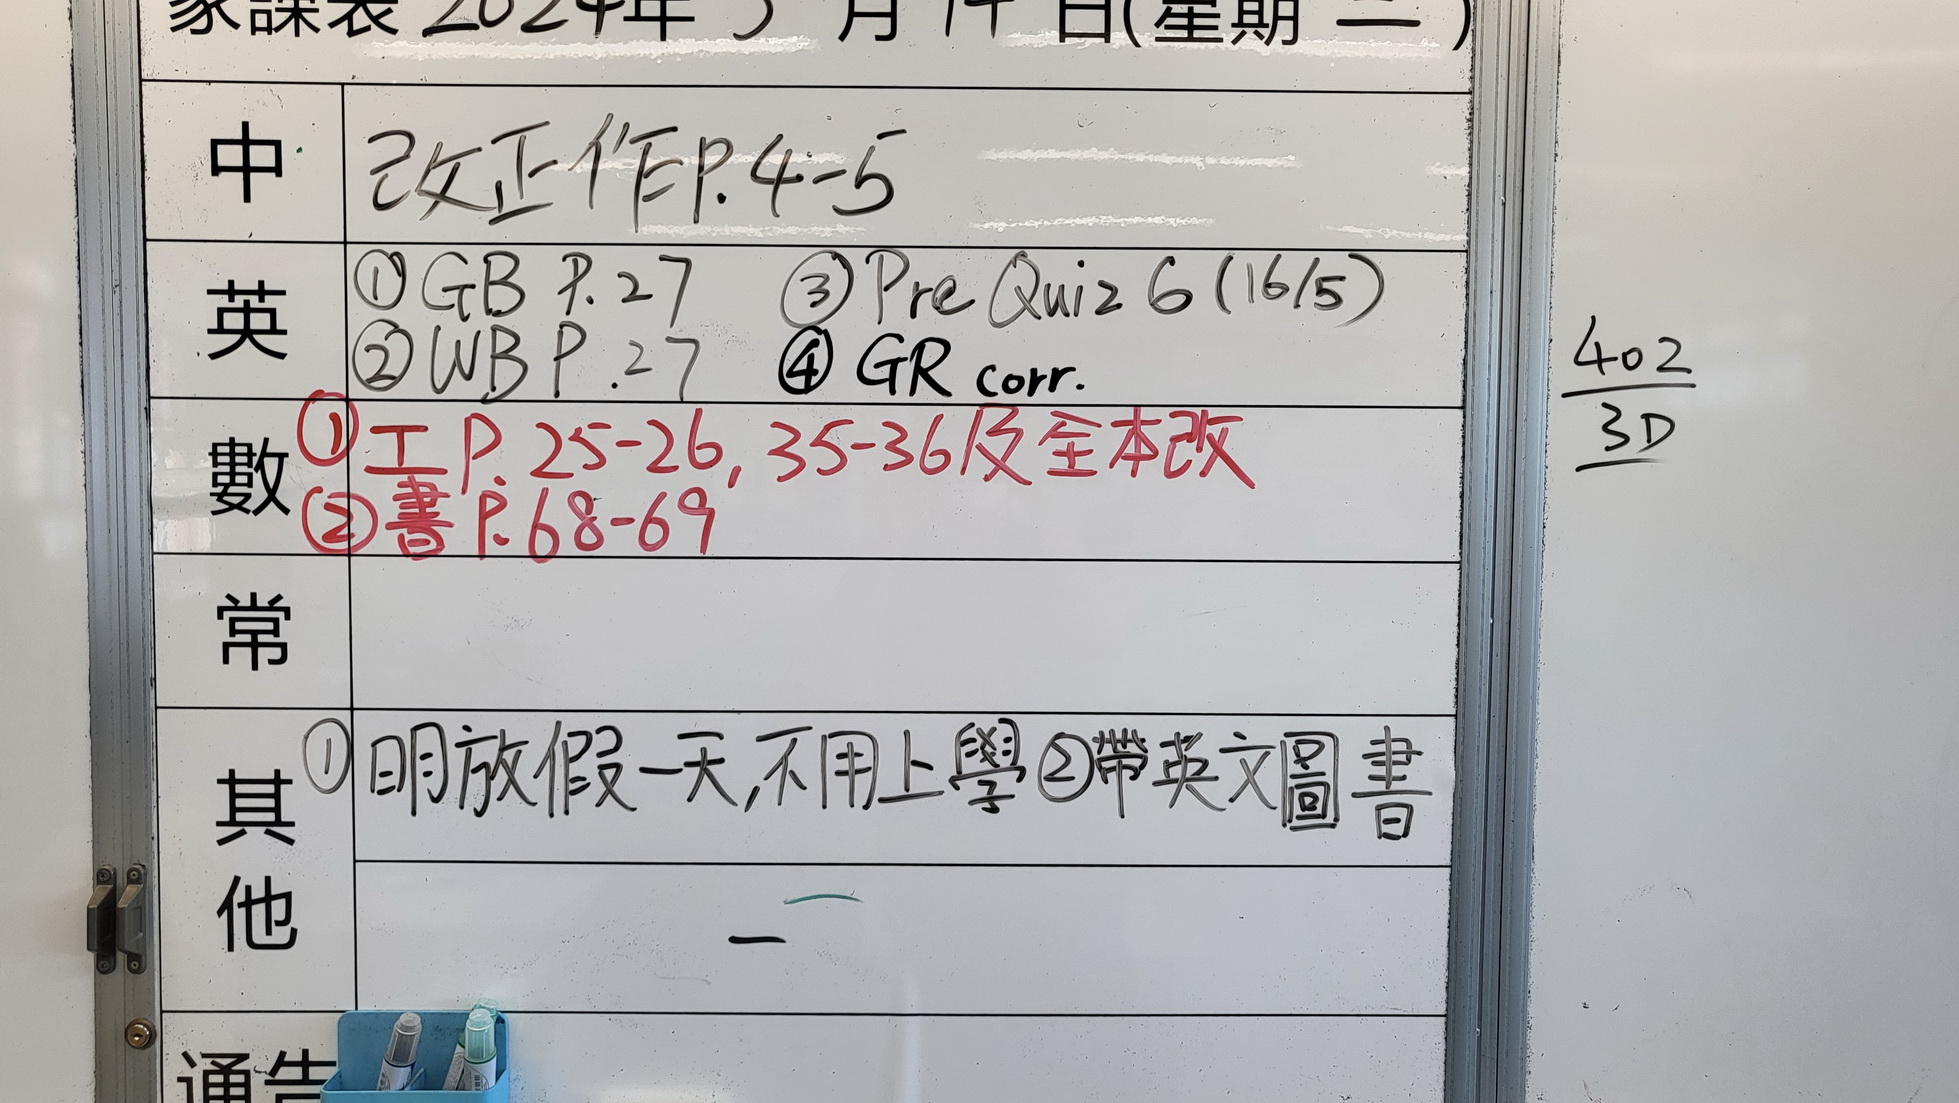 家課表 2024年 5 月 14 日(星期 二 )
中 改正作P.4-5
英 ①GB P.27 ③Pre Quiz 6 (16/5)
②WB P.27 ④ GR corr.
數 ①工P.25-26, 35-36及全本改
②書P.68-69
常
其他 ①明放假一天,不用上學②帶英文圖書
通告
402
3D